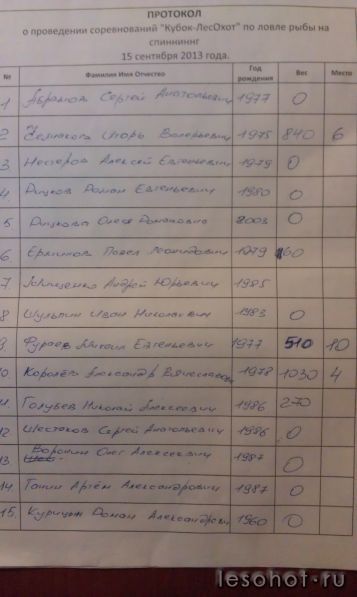 ПРОТОКОЛ
о проведении соревнований "Кубок-ЛесОхот" по ловле рыбы на
спиннинг
15 сентября 2013 года.
№ Фамилия Имя Отчество Год рождения Вес Место
1 Абрамов Сергей Анатольевич 1977 0
2 Игорь Валерьевич 1975 840 6
3 Нестеров Алексей Евгеньевич 1979 0
4 Дицков Роман Евгеньевич 1980 0
5 Дицкова Олеся Романовна 2003 0
6. Павел Леонидович 1979 60
7. Андрей Юрьевич 1985
8 Шульпин Иван Николаевич 1983 0
9. Фураев Михаил Евгеньевич 1977 510 10
10. Королёв Александр Вячеславови 1978 1030 4
11. Голубев Николай Алексеевич 1986 270
12. Шестаков Сергей Анатольевич 1986 0
13. Воронин Олег Алексеевич 1987 0
14. Ганин Артём Александрович 1987 0
15. Роман Александрови 1960 0
lesohot-ru